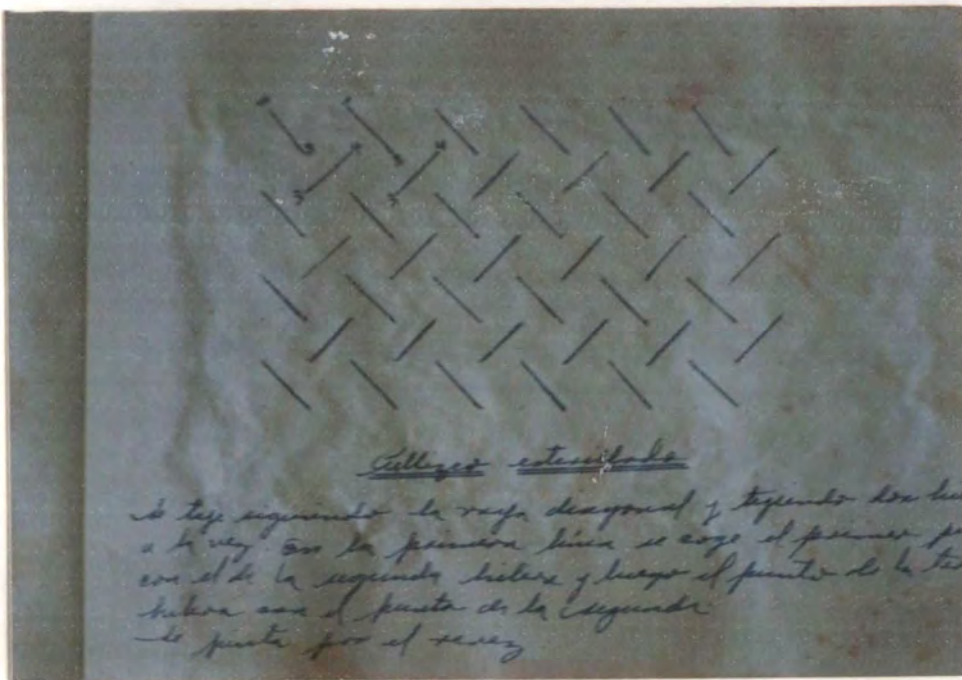 esterillado
Se teje siguiendo la raya diagonal y tejiendo dos
a la vez En la primera linea se coge el primer
con el de la segunda hilera y luego el punto de la
hilera con el punto de la segunda
Se punta por el revez